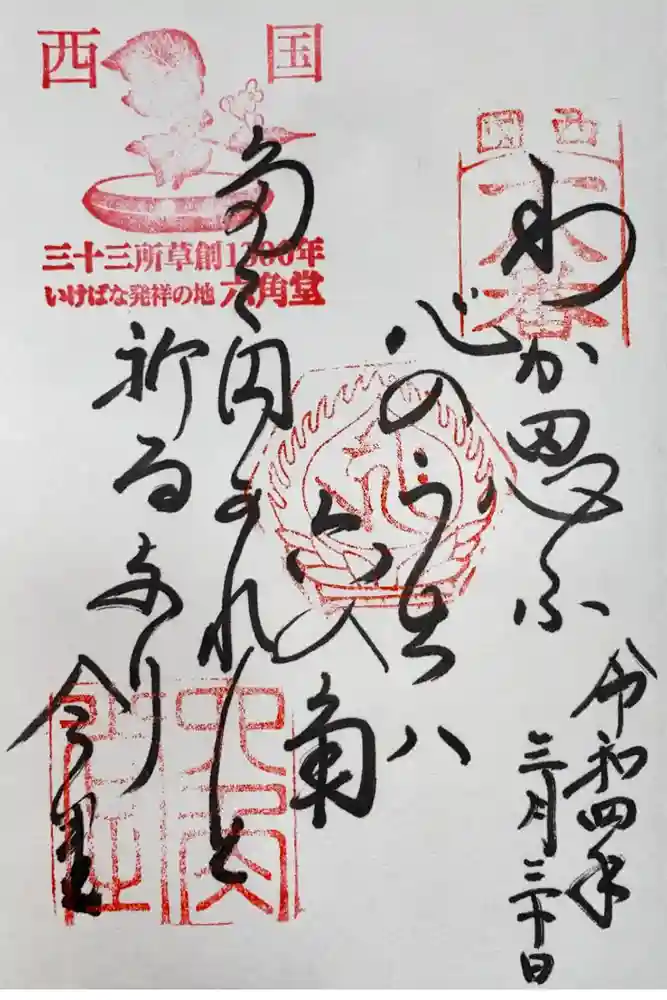 西国
三十三所草創1300年
いけばな発祥の地 六角堂
西国
十八番
わか思ふ
心のうち八
六の角
多ゝ円かれと
祈るなり介里
令和四年
三月三十日